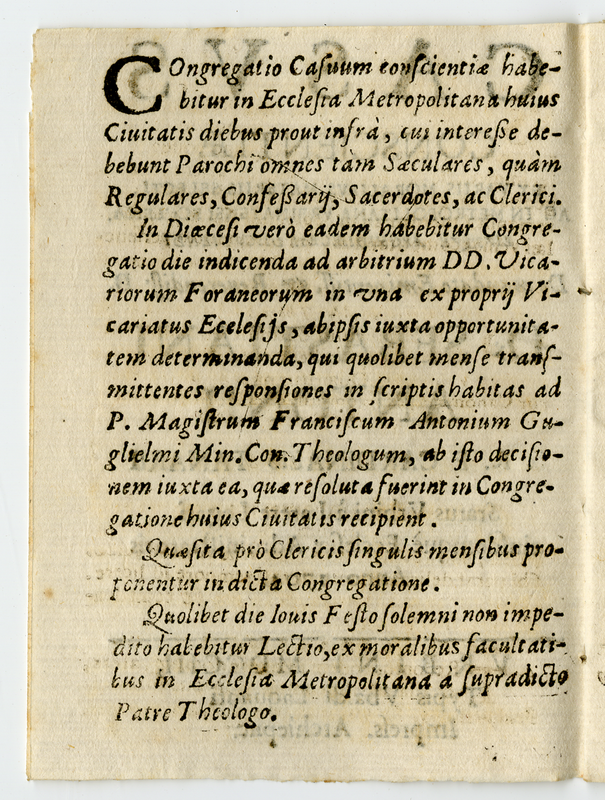 COngregatio Caſuum conſcientiæ habe-
bitur in Eccleſia Metropolitana huius
Ciuitatis diebus prout infrà, cui intereſſe de-
bebunt Parochi omnes tàm Sæculares, quàm
Regulares, Confeſſarij, Sacerdotes, ac Clerici.
In Diæceſi verò eadem habebitur Congre-
gatio die indicenda ad arbitrium DD. Vica-
riorum Foraneorum in vna ex proprij Vi-
cariatus Eccleſijs, ab ipſis iuxta opportunita-
tem determinanda, qui quolibet menſe tranſ-
mittentes reſponſiones in ſcriptis habitas ad
P. Magiſtrum Franciſcum Antonium Gu-
glielmi Min. Con. Theologum, ab iſto deciſio-
nem iuxta ea, quæ reſoluta fuerint in Congre-
gatione huius Ciuitatis recipient.
Quæſita prò Clericis ſingulis menſibus pro-
ponentur in dicta Congregatione.
Quolibet die Iouis Feſto ſolemni non impe-
dito habebitur Lectio, ex moralibus facultati-
bus in Eccleſia Metropolitana à ſupradicto
Patre Theologo.